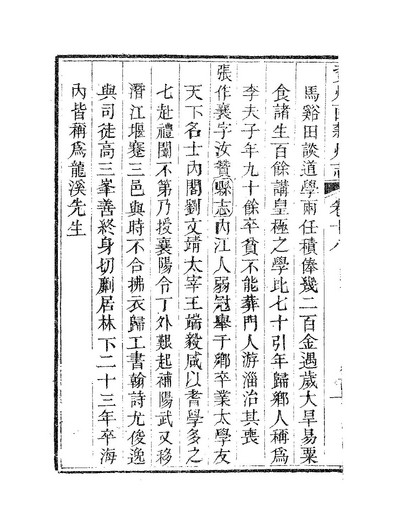 馬谿田談道學兩任積俸幾二百金遇歲大旱易粟
食諸生百餘講皇極之學比七十引年歸鄉人稱爲
李夫子年九十餘卒貧不能葬門人游淄治其喪
張作襄字汝贊縣志內江人弱冠舉于鄉卒業太學友
天下名士內閣劉文靖太宰王端毅咸以耆學多之
七赴禮闈不第乃授襄陽令丁外艱起補陽武又移
潛江堰蹇三邑與時不合拂衣歸工書翰詩尤俊逸
與司徒高三峯善終身切劘居林下二十三年卒海
內皆稱爲龍溪先生